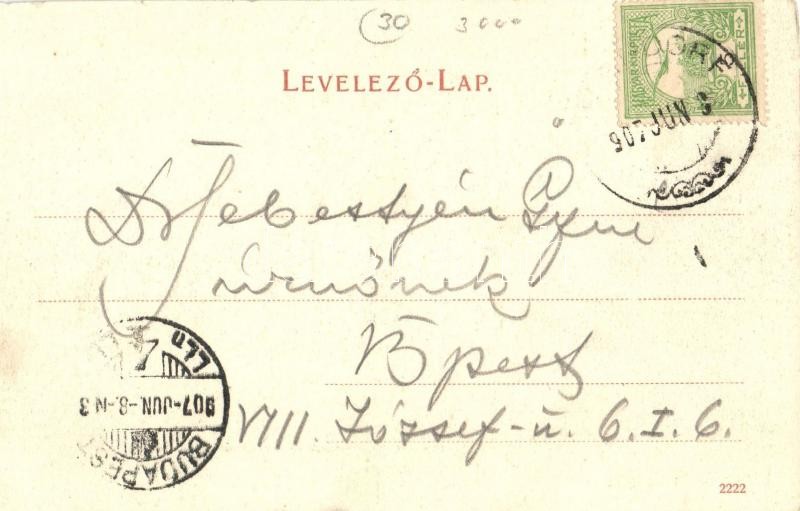 30 3000
LEVELEZŐ-LAP.
907 JUN 8
Dr Sebestyén
úrnőnek
Bpest
VIII. József-u. 6. I. 6.
907-JUN-8-N3
BUDAPEST
2222